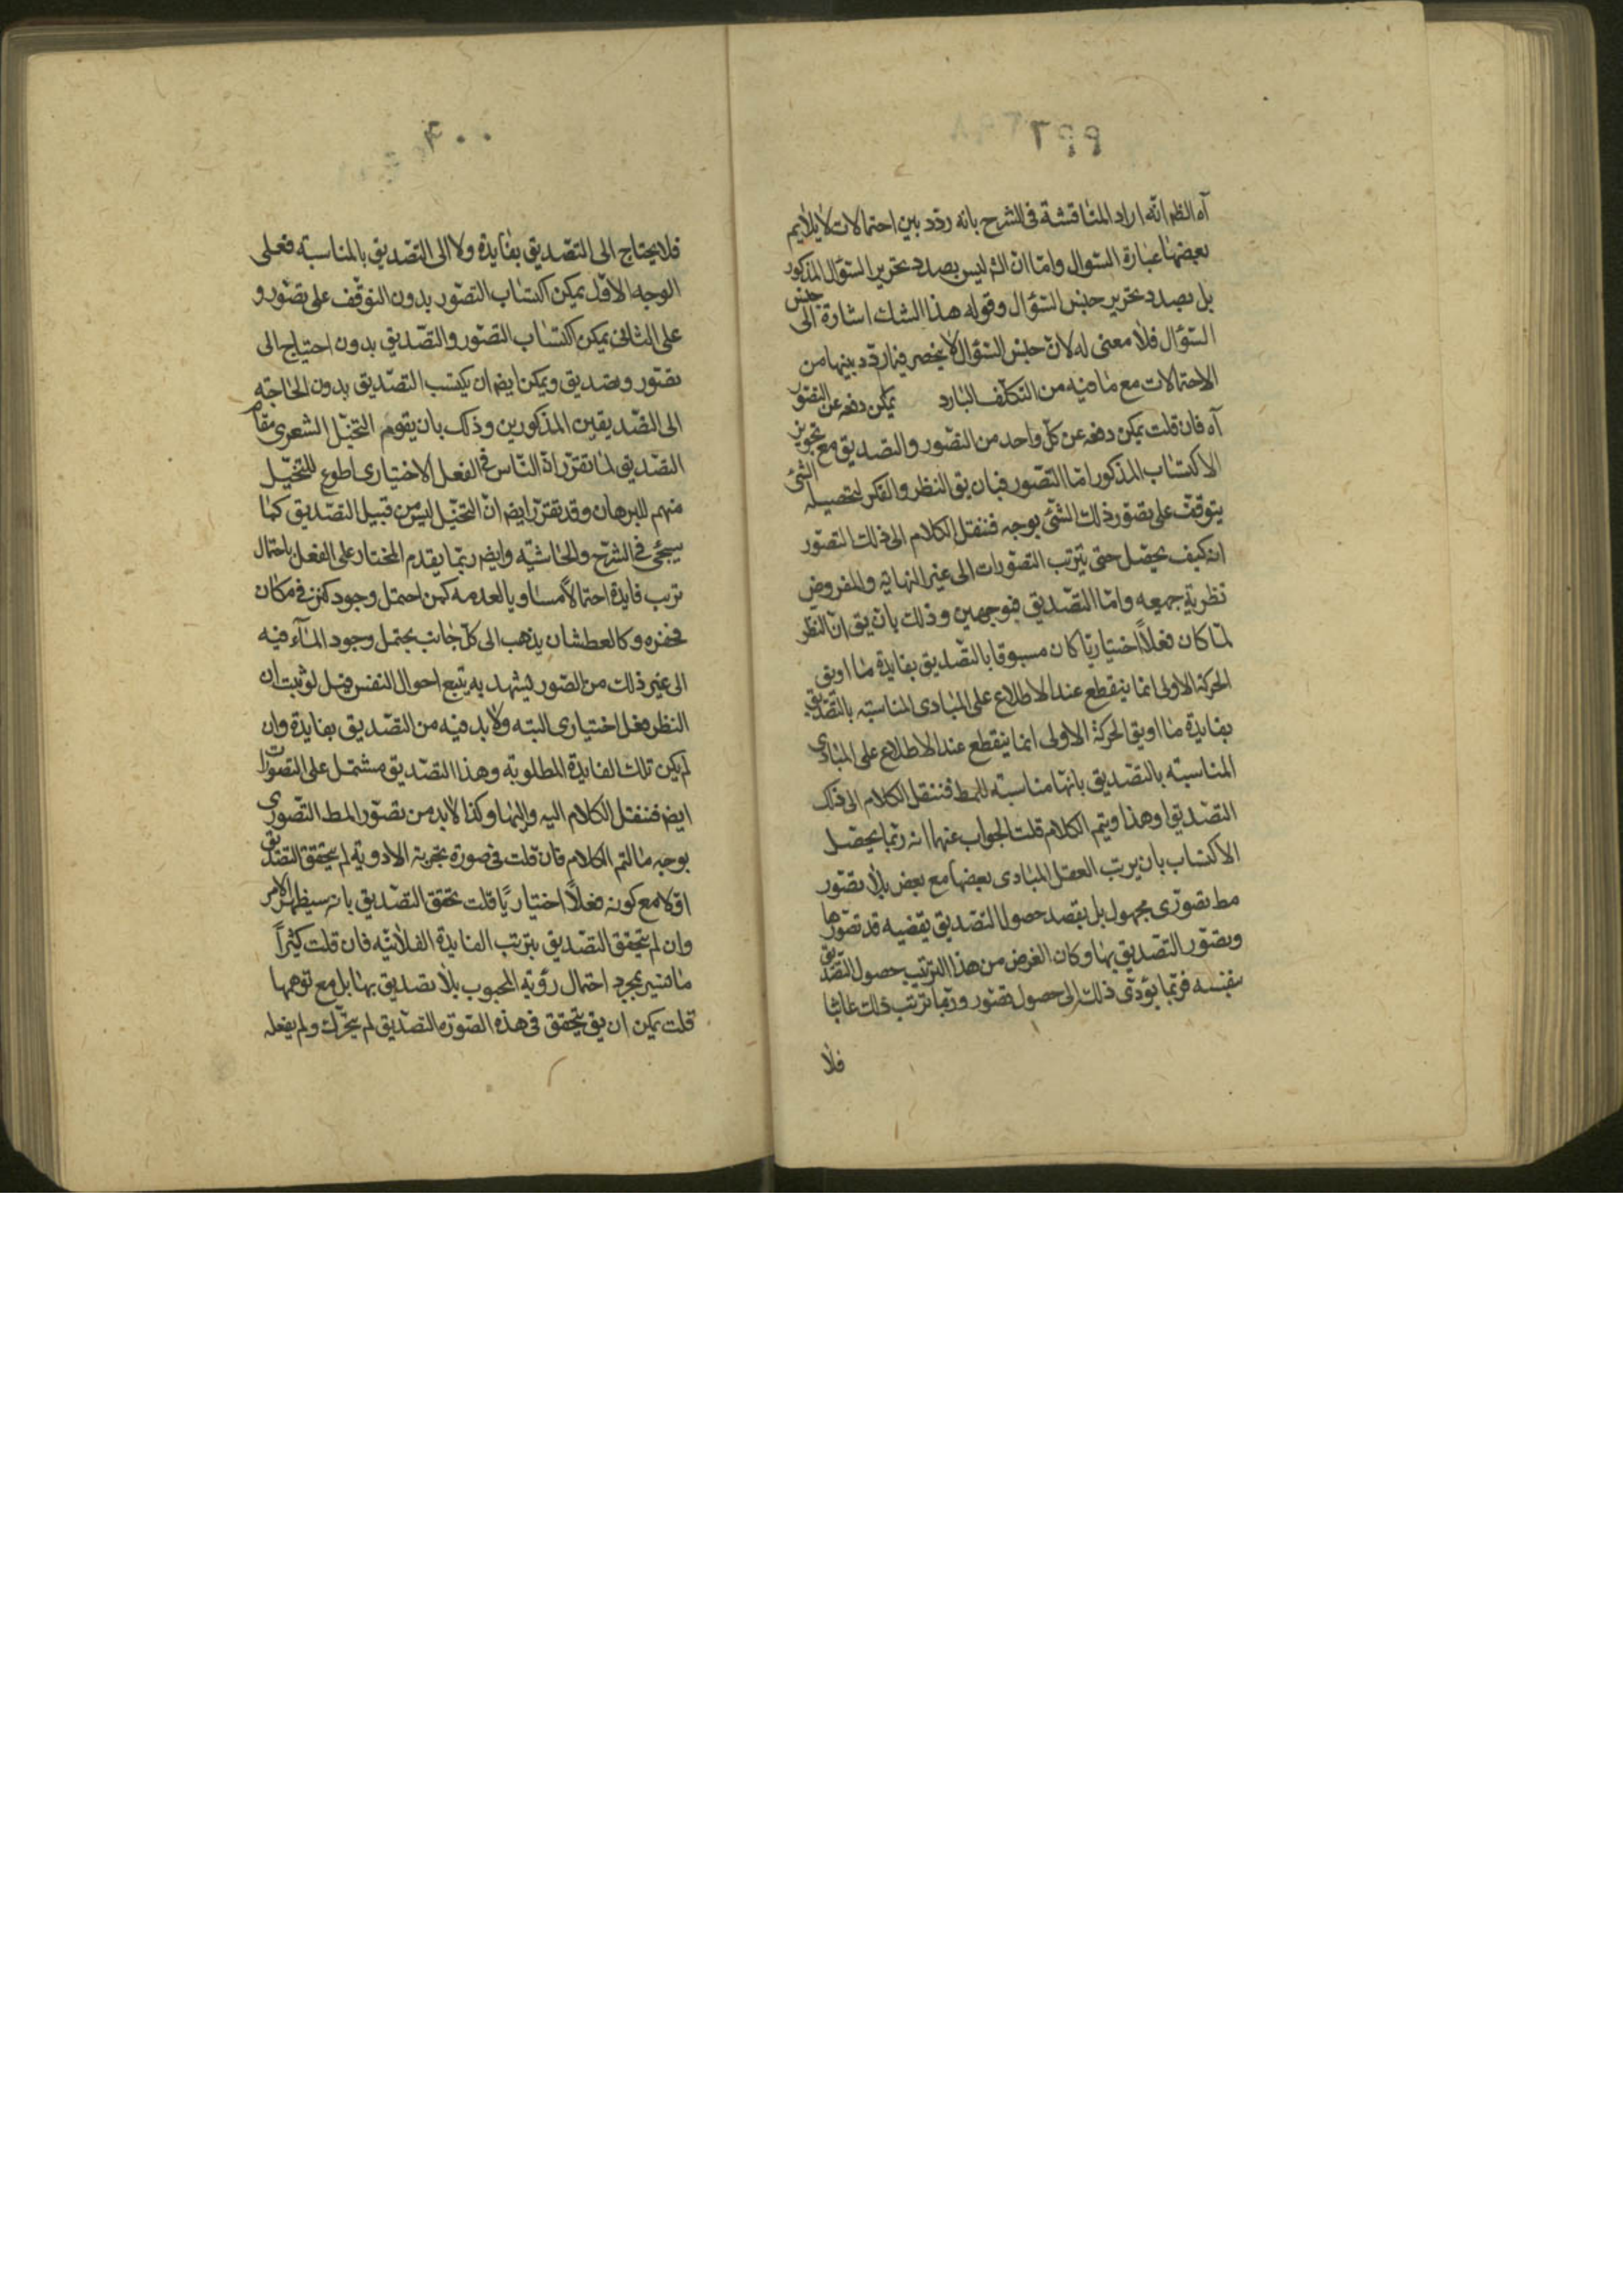 ٢٩٩
آه الظم انه اراد المناقشة فى الشرح بانه ردد بين احتمالات لا يلايم
بعضها عبارة السؤال واما ان الشم ليس بصدد تحرير السؤال المذكور
بل بصدد تحرير جنس السؤال وقوله هذا الشك اشارة الى جنس
السؤال فلا معنى له لان جنس السؤال لا ينحصر فيما ردد بينها من
الاحتمالات مع ما فيه من التكلف البارد يمكن دفعه عن التصور
آه فان قلت يمكن دفعه عن كل واحد من التصور والتصديق مع تجويز
الاكتساب المذكور اما التصور فبان يق النظر والفكر لتحصيله الشئ
يتوقف على تصور ذلك الشئ بوجه فننقل الكلام الى ذلك التصور
انه كيف يحصل حتى يترتب التصورات الى غير النهاية والمفروض
نظرية جميعه واما التصديق فبوجهين وذلك بان يق ان النظر
لما كان فعلاً اختياريا كان مسبوقا بالتصديق بفايدة ما او يق
الحركة الاولى انما ينقطع عند الاطلاع على المبادى المناسبة بالتصديق
بفايدة ما او يق الحركة الاولى انما ينقطع عند الاطلاع على المبادى
المناسبة بالتصديق بانها مناسبة للمط فننقل الكلام الى ذلك
التصديق وهذا ويتم الكلام قلت الجواب عنهما انه ربما يحصل
الاكتساب بان يرتب العقل المبادى بعضها مع بعض بلا تصور
مط تصورى مجهول بل بقصد حصول التصديق بقضيه قد تصورها
وبصور التصديق بها وكان الغرض من هذا الترتيب حصول التصديق
بنفسه فربما يؤدى ذلك الى حصول تصور وربما ترتب ذلك عابثا
فلا
٣٠٠
فلا يحتاج الى التصديق بفايدة ولا الى التصديق بالمناسبة فعلى
الوجه الاول يمكن اكتساب التصور بدون التوقف على تصور و
على الثانى يمكن اكتساب التصور والتصديق بدون احتياج الى
تصور وتصديق ويمكن ايضم ان يكتسب التصديق بدون الحاجة
الى التصديقين المذكورين وذلك بان يقوم التخيل الشعرى مقام
التصديق لما تقرر ان الناس فى الفعل الاختيارى اطوع للتخيل
منهم للبرهان وقد تقرر ايضم ان التخيل ليس من قبيل التصديق كما
سيجئ فى الشرح والحاشية وايضم ربما يقدم المختار على الفعل باحتمال
ترتب فايدة احتمالاً مساويا لعدمه كمن احتمل وجود كنز فى مكان
فحفره وكالعطشان يذهب الى كل جانب يحتمل وجود الماء فيه
الى غير ذلك من الصور ليشهد به يتبع احوال النفس فيل لو ثبت ان
النظر فعل اختيارى البته ولا بد فيه من التصديق بفايدة وان
لم يكن تلك الفايدة المطلوبة وهذا التصديق مشتمل على التصورات
ايضم فننقل الكلام اليه واليها وكذا لا بد من تصور المط التصورى
بوجه ما لتم الكلام فان قلت فى صورة تجربة الادوية لم يتحقق التصديق
اولا مع كونه فعلاً اختياريًا قلت تحقق التصديق بانه سيظهر الامر
وان لم يتحقق التصديق بترتب الفايدة الفلانية فان قلت كثيراً
ما نسير بمجرد احتمال رؤية المحبوب بلا تصديق بها بل مع توهمها
قلت يمكن ان يق يتحقق فى هذه الصورة التصديق لم يتحرك ولم يفعله